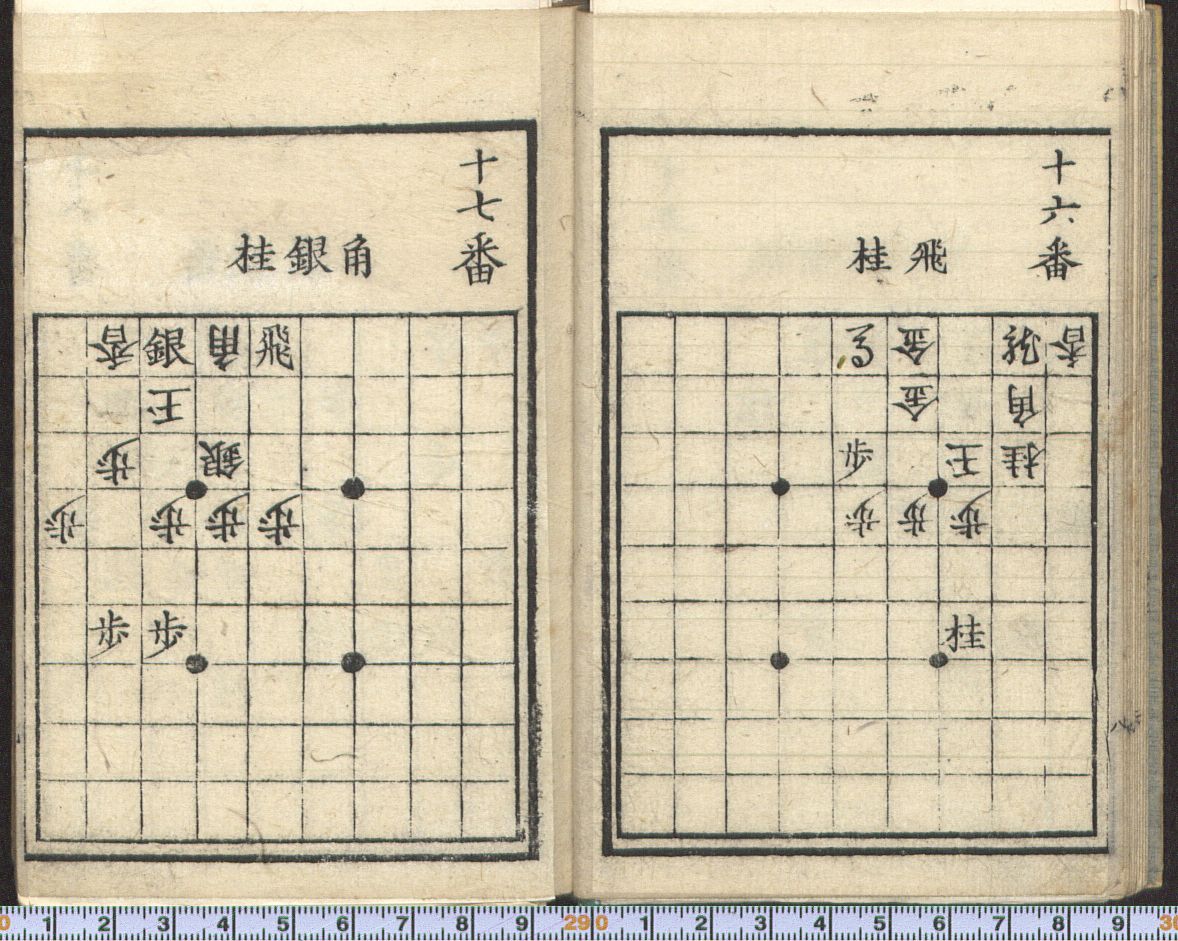 十六番
飛桂
馬金龍香
金角
歩王桂
歩歩歩
桂
十七番
角銀桂
香銀角飛
王
歩銀
歩歩歩歩
歩歩
0 1 2 3 4 5 6 7 8 9 29 0 1 2 3 4 5 6 7 8 9 30